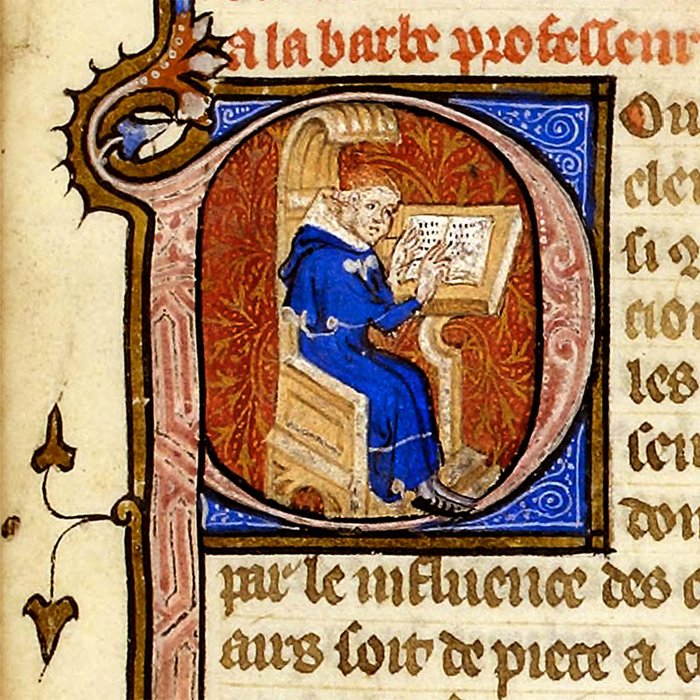 a la barbe professeur
Ou
cler
si q
cion
les
sen
don
par le influence des c
aurs soit de piece a c